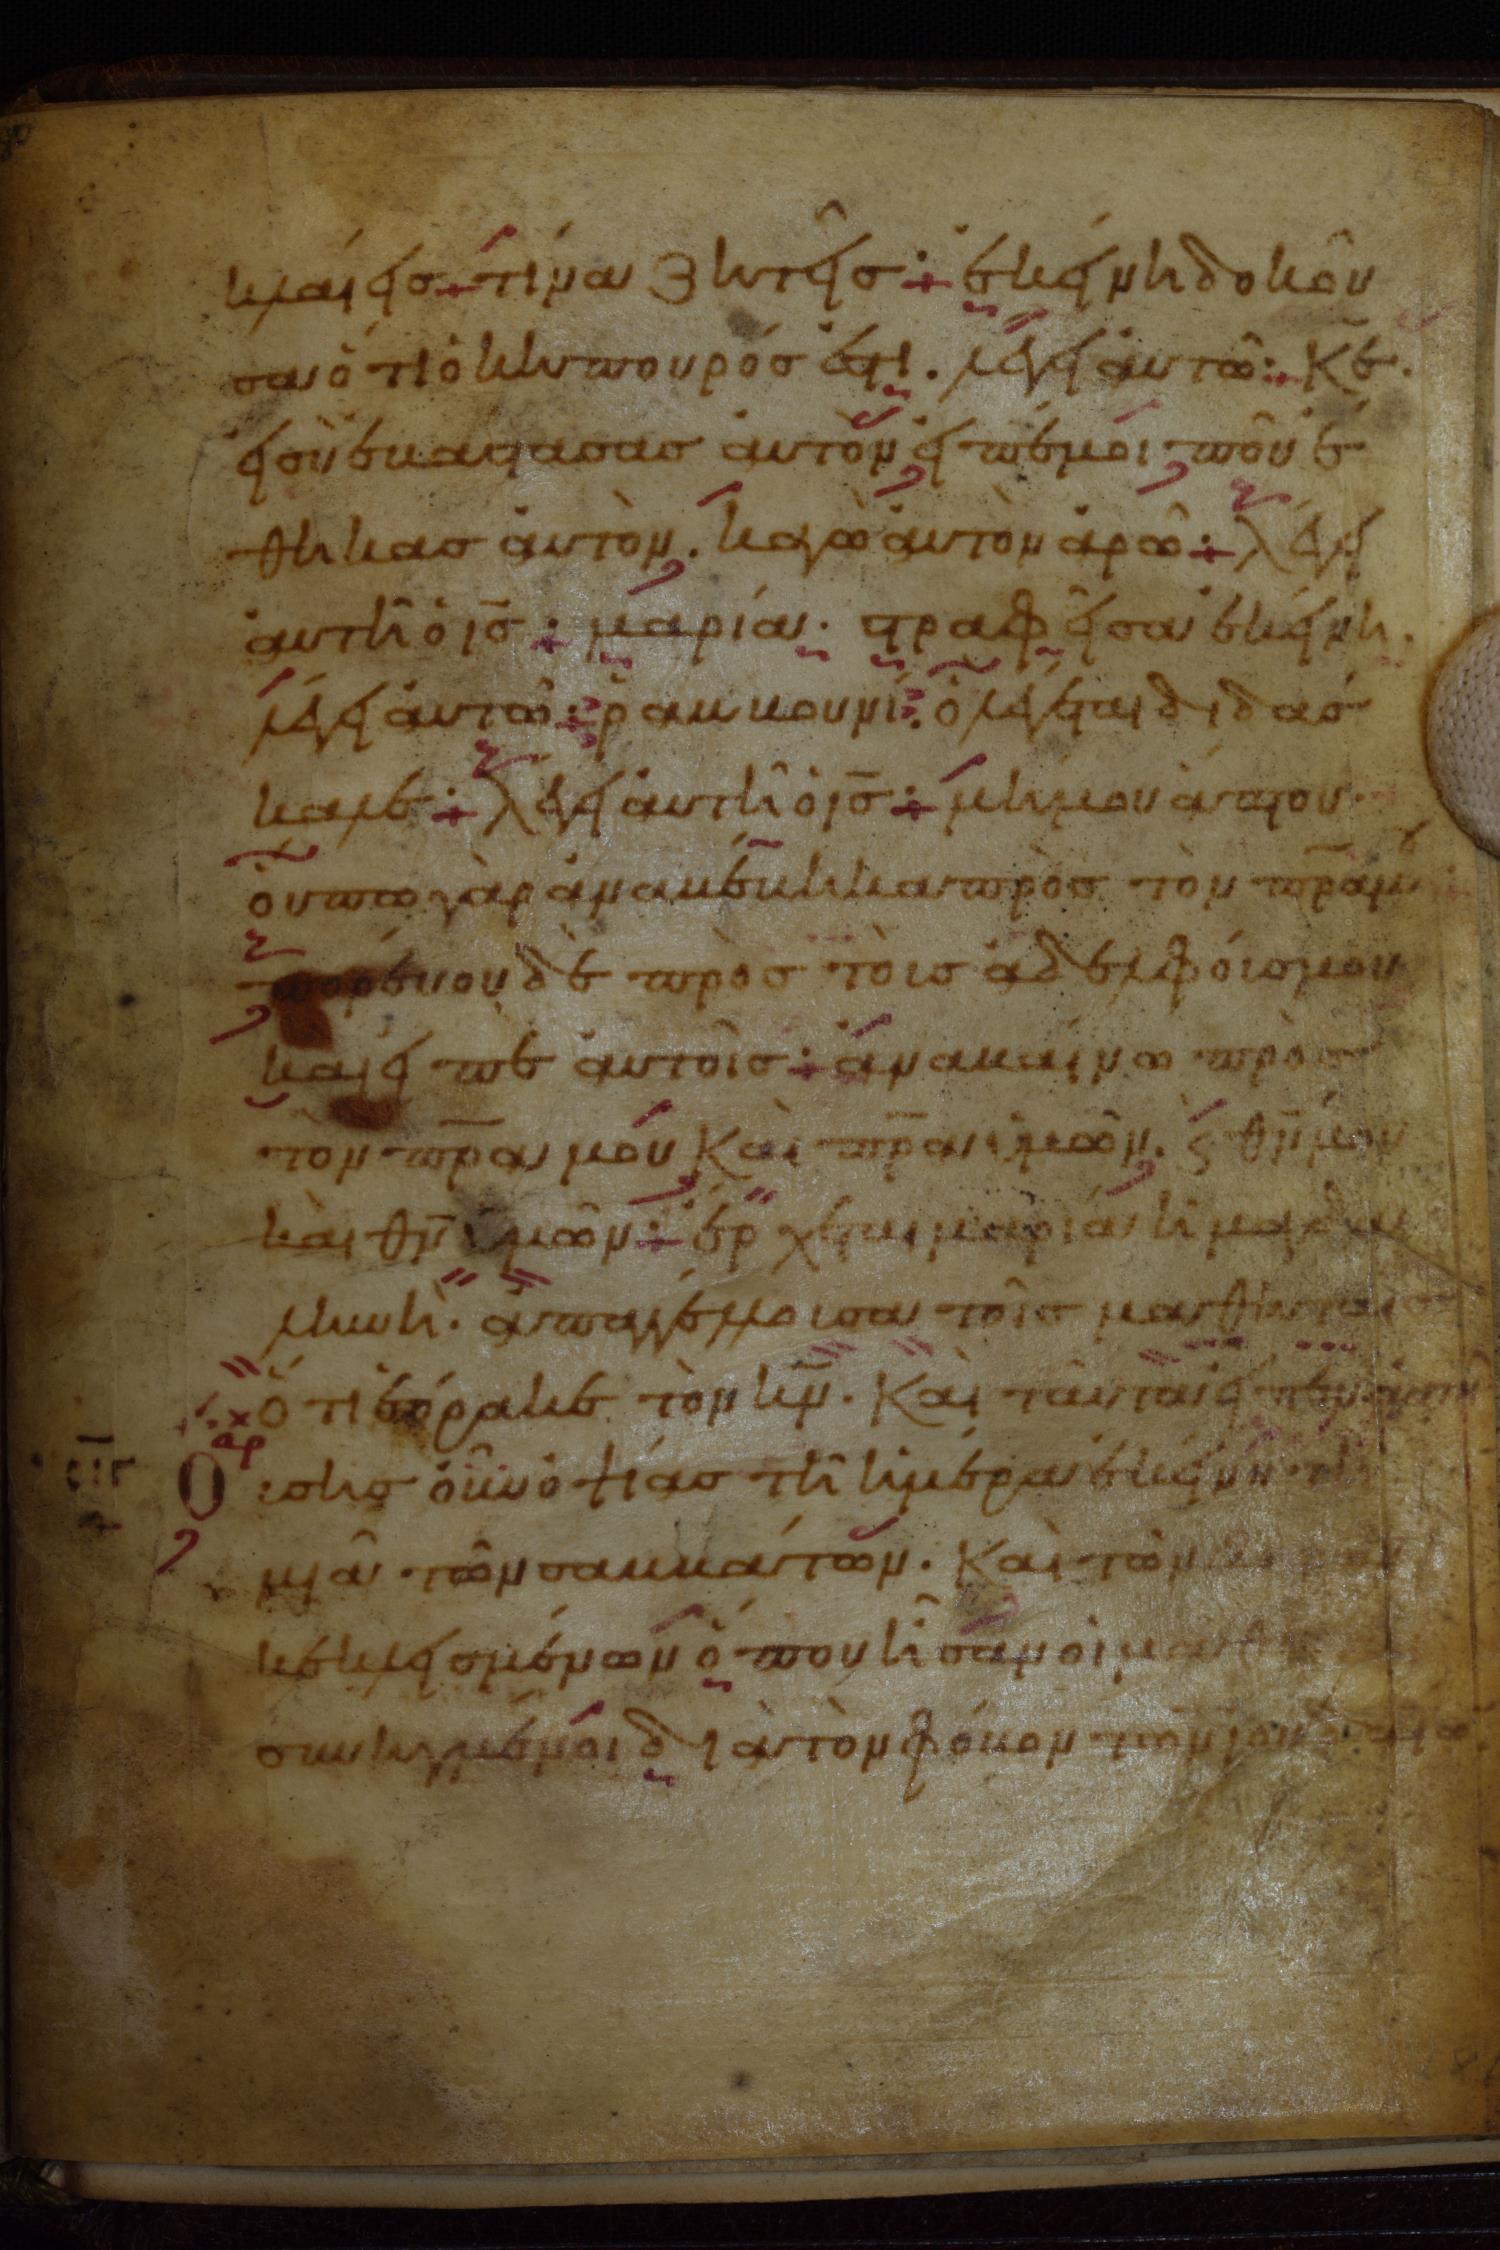 κλαίεις + τίνα ζητεῖς + ἐκείνη δοκοῦ
σα ὅτι ὁ κηπουρός ἐστι. λέγει αὐτῶ + κ̅ε.
εἰ σὺ ἐβάστασας αὐτὸν εἰπέ μοι ποῦ ἔ
θηκας αὐτὸν. κἀγὼ αὐτὸν ἀρῶ + λέγει
αὐτῆ ὁ ι̅ς̅ + μαρία. στραφεῖσα ἐκείνη.
λέγει αὐτῶ + ραββουνί. ὃ λέγεται διδάσ
καλε + λέγει αὐτῆ ὁ ι̅ς̅ + μή μου ἅπτου.
οὔπω γὰρ ἀναβέβηκα πρὸς τὸν π̅ρ̅α μου
πορεύου δὲ πρὸς τοὺς ἀδελφούς μου
καὶ εἰπὲ αὐτοῖς + ἀναβαίνω πρὸς
τὸν π̅ρ̅α μου καὶ π̅ρ̅α ὑμῶν. ϛ θ̅ν̅ μου
καὶ θ̅ν̅ ὑμῶν + ἔρχεται μαρία ἡ μαγδα
ληνὴ. ἀπαγγέλλουσα τοῖς μαθηταῖς
ὅτι ἑώρακε τὸν κ̅ν̅. καὶ ταῦτα εἶπεν αὐτῆ
αρ
Οὔσης οὖν ὀψίας τῆ ἡμέρα ἐκείνη τῆ
μιᾶ τῶν σαββάτων. καὶ τῶν θυρῶν
κεκλεισμένων ὅπου ἦσαν οἱ μαθη
συνηγμένοι διὰ τὸν φόβον τῶν ἰουδαίω